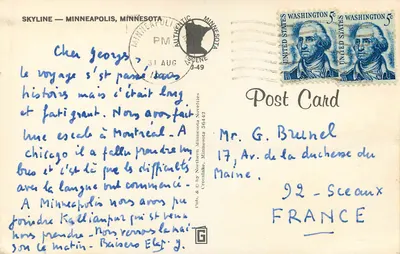 SKYLINE — MINNEAPOLIS, MINNESOTA
MINNEAPOLIS
PM
31 AUG
AUTHENTIC
MINNESOTA
SCENE
UNITED STATES
WASHINGTON 5c
UNITED STATES
WASHINGTON 5c
Post Card
Cher Georges,
le voyage s'est passé sans
histoires mais c'était long
et fatigant. Nous avons fait
une escale à Montreal - A
Chicago il a fallu prendre un
bus et c'est là que les difficultés
avec la langue ont commencé.
A Minneapolis nous avons pu
joindre Kallianpur qui est venu
nous prendre - Nous verrons la mai
son ce matin - Baisers
Mr. G. Brunel
17, Av. de la duchesse du
Maine.
92 - Sceaux
FRANCE